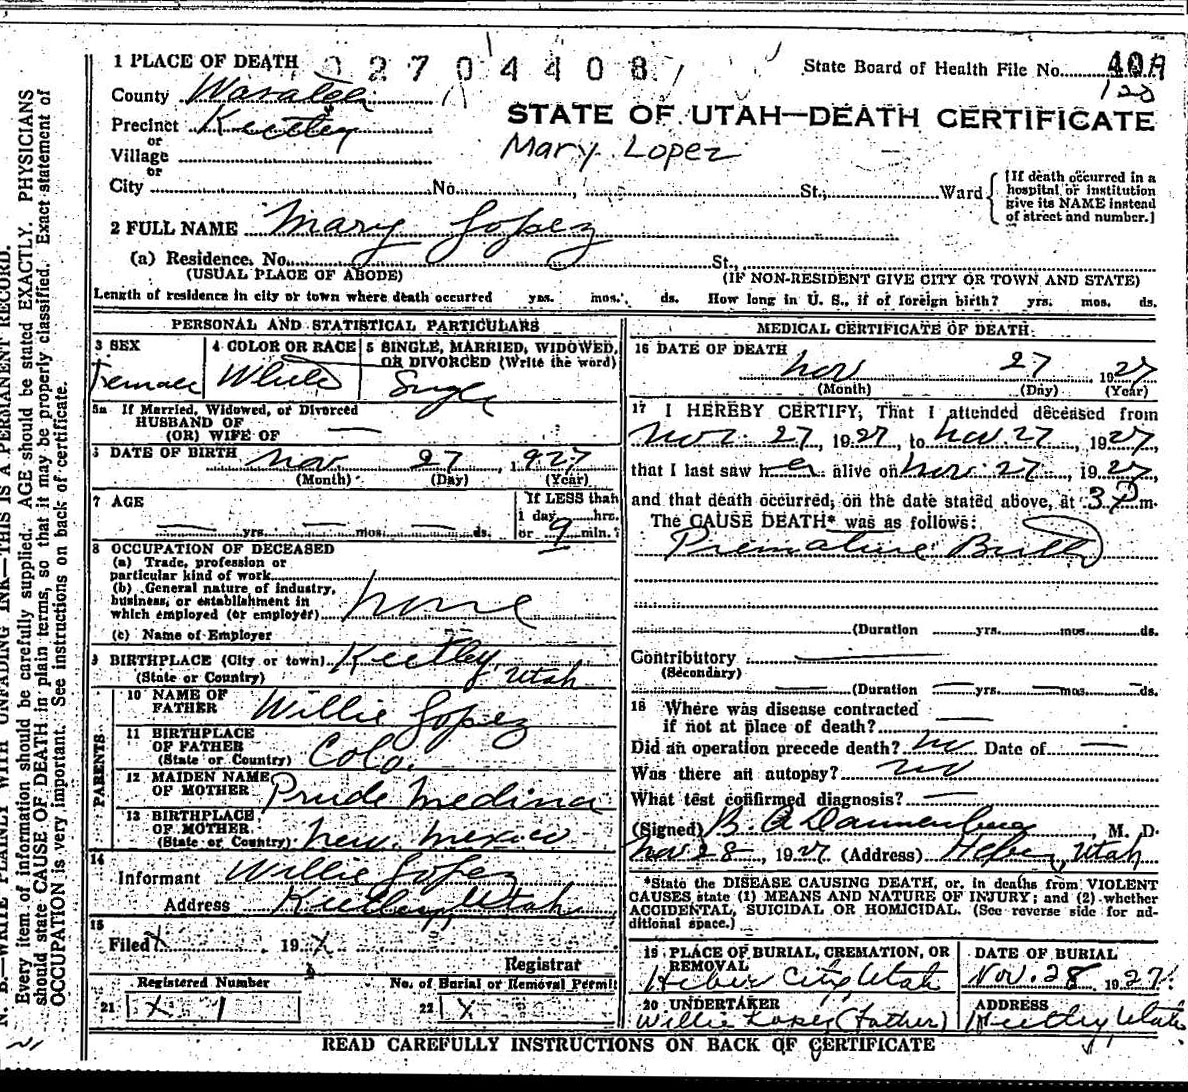 1 PLACE OF DEATH 02704408 State Board of Health File No. 409
County Wasatch
128
STATE OF UTAH—DEATH CERTIFICATE
Precinct Keetley
Mary Lopez
or
Village
or
City No. St., Ward
[If death occurred in a
hospital or institution
give its NAME instead
of street and number.]
2 FULL NAME Mary Lopez
(a) Residence. No. St.,
(USUAL PLACE OF ABODE) (IF NON-RESIDENT GIVE CITY OR TOWN AND STATE)
Length of residence in city or town where death occurred yrs. mos. ds. How long in U. S., if of foreign birth? yrs. mos. ds.
PERSONAL AND STATISTICAL PARTICULARS
3 SEX 4 COLOR OR RACE 5 SINGLE, MARRIED, WIDOWED,
OR DIVORCED (Write the word)
Female White Single
5a If Married, Widowed, or Divorced
HUSBAND OF
(OR) WIFE OF —
6 DATE OF BIRTH Nov 27, 1927
(Month) (Day) (Year)
7 AGE If LESS than
1 day hrs.
— yrs. — mos. — ds. or 9 min.
8 OCCUPATION OF DECEASED
(a) Trade, profession or
particular kind of work
(b) General nature of industry,
business, or establishment in
which employed (or employer) none
(c) Name of Employer
9 BIRTHPLACE (City or town) Keetley,
(State or Country) Utah
PARENTS
10 NAME OF
FATHER Willie Lopez
11 BIRTHPLACE
OF FATHER
(State or Country) Colo.
12 MAIDEN NAME
OF MOTHER Prude Medina
13 BIRTHPLACE
OF MOTHER
(State or Country) New Mexico
14
Informant Willie Lopez
Address Keetley, Utah
15
Filed X 19 X
Registrar
Registered Number No. of Burial or Removal Permit
21 X 1 22 X
MEDICAL CERTIFICATE OF DEATH
16 DATE OF DEATH
Nov 27 1927
(Month) (Day) (Year)
17 I HEREBY CERTIFY, That I attended deceased from
Nov. 27, 1927, to Nov. 27, 1927,
that I last saw her alive on Nov. 27, 1927
and that death occurred, on the date stated above, at 3 P m.
The CAUSE DEATH* was as follows:
Premature Birth
(Duration yrs. mos. ds.
Contributory —
(Secondary)
— (Duration — yrs. — mos. — ds.
18 Where was disease contracted
if not at place of death? —
Did an operation precede death? no Date of —
Was there an autopsy? no
What test confirmed diagnosis? —
(Signed) B. A Dannenberg, M. D.
Nov 28, 1927 (Address) Heber, Utah
*State the DISEASE CAUSING DEATH, or, in deaths from VIOLENT
CAUSES state (1) MEANS AND NATURE OF INJURY; and (2) whether
ACCIDENTAL, SUICIDAL OR HOMICIDAL. (See reverse side for ad-
ditional space.)
19 PLACE OF BURIAL, CREMATION, OR
REMOVAL
Heber City Utah
DATE OF BURIAL
Nov. 28 1927
20 UNDERTAKER
Willie Lopez (father)
ADDRESS
Keetley Utah
READ CAREFULLY INSTRUCTIONS ON BACK OF CERTIFICATE
N. B.—WRITE PLAINLY WITH UNFADING INK—THIS IS A PERMANENT RECORD.
Every item of information should be carefully supplied. AGE should be stated EXACTLY. PHYSICIANS
should state CAUSE OF DEATH in plain terms, so that it may be properly classified. Exact statement of
OCCUPATION is very important. See instructions on back of certificate.